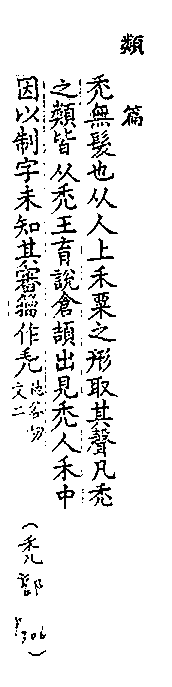 類篇
禿無髮也从人上禾粟之形取其聲凡禿
之類皆从禿王育說倉頡出見禿人禾中
因以制字未知其審籀作禿他谷切文二
(禿部 P306)